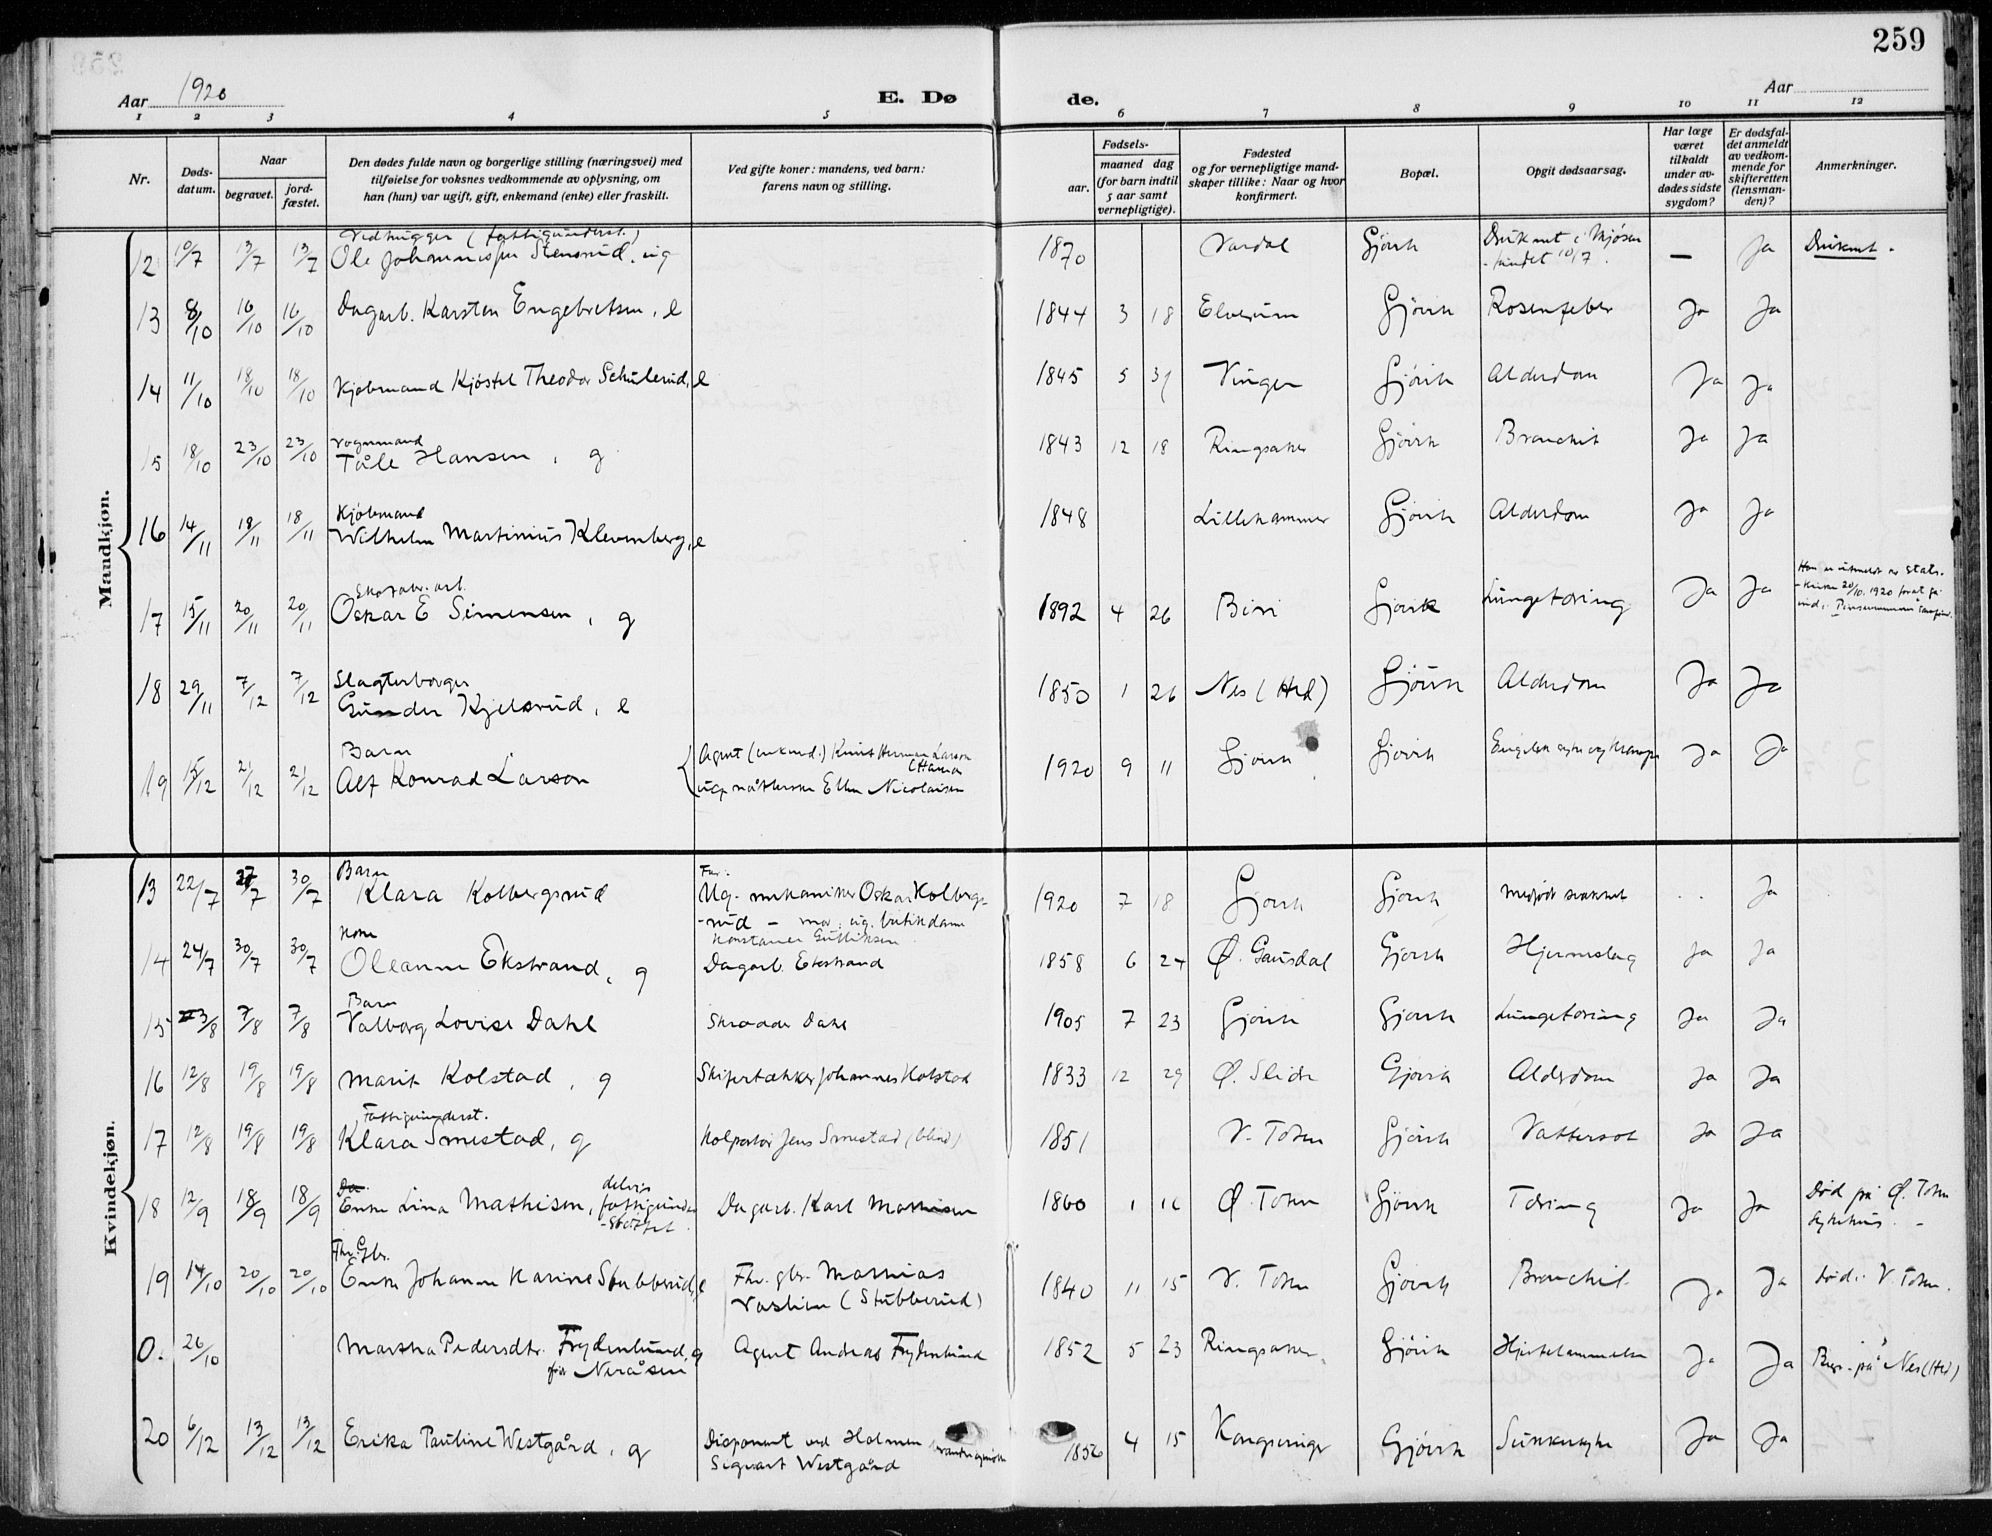 259
Aar 1920
E. Dø
de.
Aar
1 2 3 4 5 6 7 8 9 10 11 12
Nr.
Døds-
datum.
Naar
begravet.
jord-
fæstet.
Den dødes fulde navn og borgerlige stilling (næringsvei) med
tilføielse for voksnes vedkommende av oplysning, om
han (hun) var ugift, gift, enkemand (enke) eller fraskilt.
Ved gifte koner: mandens, ved barn:
farens navn og stilling.
Fødsels-
aar.
maaned dag
(for barn indtil
5 aar samt
vernepligtige).
Fødested
og for vernepligtige mand-
skaper tillike: Naar og hvor
konfirmert.
Bopæl.
Opgit dødsaarsag.
Har læge
været
tilkaldt
under av-
dødes sidste
sygdom?
Er dødsfal-
det anmeldt
av vedkom-
mende for
skifteretten
(lensman-
den)?
Anmerkninger.
Mandkjøn.
Vedhugger (fattigunderst.)
12 10/7 13/7 13/7 Ole Johannessen Stensrud. ug 1870 Vardal Gjøvik Druknet i Mjøsen
- fundet 10/7. — Ja Druknet.
13 8/10 16/10 16/10 Dagarb. Karsten Engebretsen, e 1844 3 18 Elverum Gjøvik Rosenfeber Ja Ja
14 11/10 18/10 18/10 Kjøbmand Kjøstel Theodor Schulerud, e 1845 5 31 Vinger Gjøvik Alderdom Ja Ja
Vognmand
15 18/10 23/10 23/10 Tåle Hansen, g 1843 12 18 Ringsaker Gjøvik Bronchit Ja Ja
Kjøbmand
16 14/11 18/11 18/11 Wilhelm Martinius Klevenberg, e 1848 Lillehammer Gjøvik Alderdom Ja Ja
Skofabr. arb.
17 15/11 20/11 20/11 Oskar E Simensen, g 1892 4 26 Biri Gjøvik Lungetæring Ja Ja Han er utmeldt av stats-
-kirken 20/10. 1920 forat gå
ind i Pinsevennernes
Slagterborger
18 29/11 7/12 7/12 Gunder Kjelsrud, e 1850 1 26 Nes (Hed) Gjøvik Alderdom Ja Ja
Barn
19 15/12 21/12 21/12 Alf Konrad Larson Agent (enkemd.) Knut Herman Larson
(Hamar
ug. Ellen Nicolaisen 1920 9 11 Gjøvik Gjøvik Engelsk syke og Krampe Ja Ja
Kvindekjøn.
Barn
13 22/7 27/7 30/7 Klara Kolbergsrud Far:
Ug. mekaniker Oskar Kolbergs-
-rud — mor: ug. butikdame
Konstance Gulliksen 1920 7 18 Gjøvik Gjøvik medfødt svakhet .. Ja
Kone
14 24/7 30/7 30/7 Oleanne Ekstrand, g Dagarb. Ekstrand 1858 6 24 Ø. Gausdal Gjøvik Hjerneslag Ja Ja
Barn
15 3/8 7/8 7/8 Valborg Lovise Dahl Skrædder Dahl 1905 7 23 Gjøvik Gjøvik Lungetæring Ja Ja
16 12/8 19/8 19/8 Marit Kolstad, g Skifertækker Johannes Kolstad 1833 12 29 Ø. Slidre Gjøvik Alderdom Ja Ja
Fattigunderst.
17 12/8 19/8 19/8 Klara Smestad, g Kolportør Jens Smestad (blind) 1851 V. Toten Gjøvik Vattersot Ja Ja
18 12/9 18/9 18/9 Enke Lina Mathisen, delvis
fattigunder
-støttet Dagarb. Karl Mathisen 1860 1 16 Ø. Toten Gjøvik Tæring Ja Ja Død på Ø. Toten
sykehus. -
Fhv. Gbr.
19 14/10 20/10 20/10 Enke Johanne Karine Stubberud, e Fhv. gbr. Mathias
Vashien (Stubberud) 1840 11 15 V. Toten Gjøvik Bronchit Ja Ja Død i V. Toten.
0. 26/10 Martha Pedersdtr. Frydenlund, g
før Neråsen Agent Andreas Frydenlund 1852 5 23 Ringsaker Gjøvik Hjertelammelse Ja Ja Begr. på Nes (Hed)
20 6/12 13/12 13/12 Erika Pauline Westgård, g Disponent ved Holmen
Sigvart Westgård 1856 4 15 Kongsvinger Gjøvik Sukkersyke Ja Ja